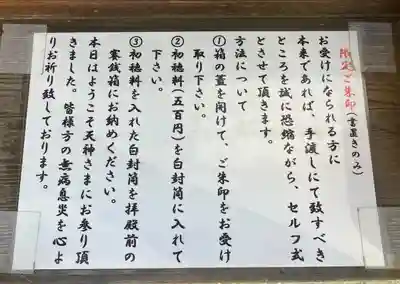 限定ご朱印(書置きのみ)
お受けになられる方に
本来であれば、手渡しにて致すべき
ところを誠に恐縮ながら、セルフ式
とさせて頂きます。
方法について
①箱の蓋を開けて、ご朱印をお受け
取り下さい。
②初穂料(五百円)を白封筒に入れて
下さい。
③初穂料を入れた白封筒を拝殿前の
賽銭箱にお納めください。
本日はようこそ天神さまにお参り頂
きました。皆様方の無病息災を心よ
りお祈り致しております。